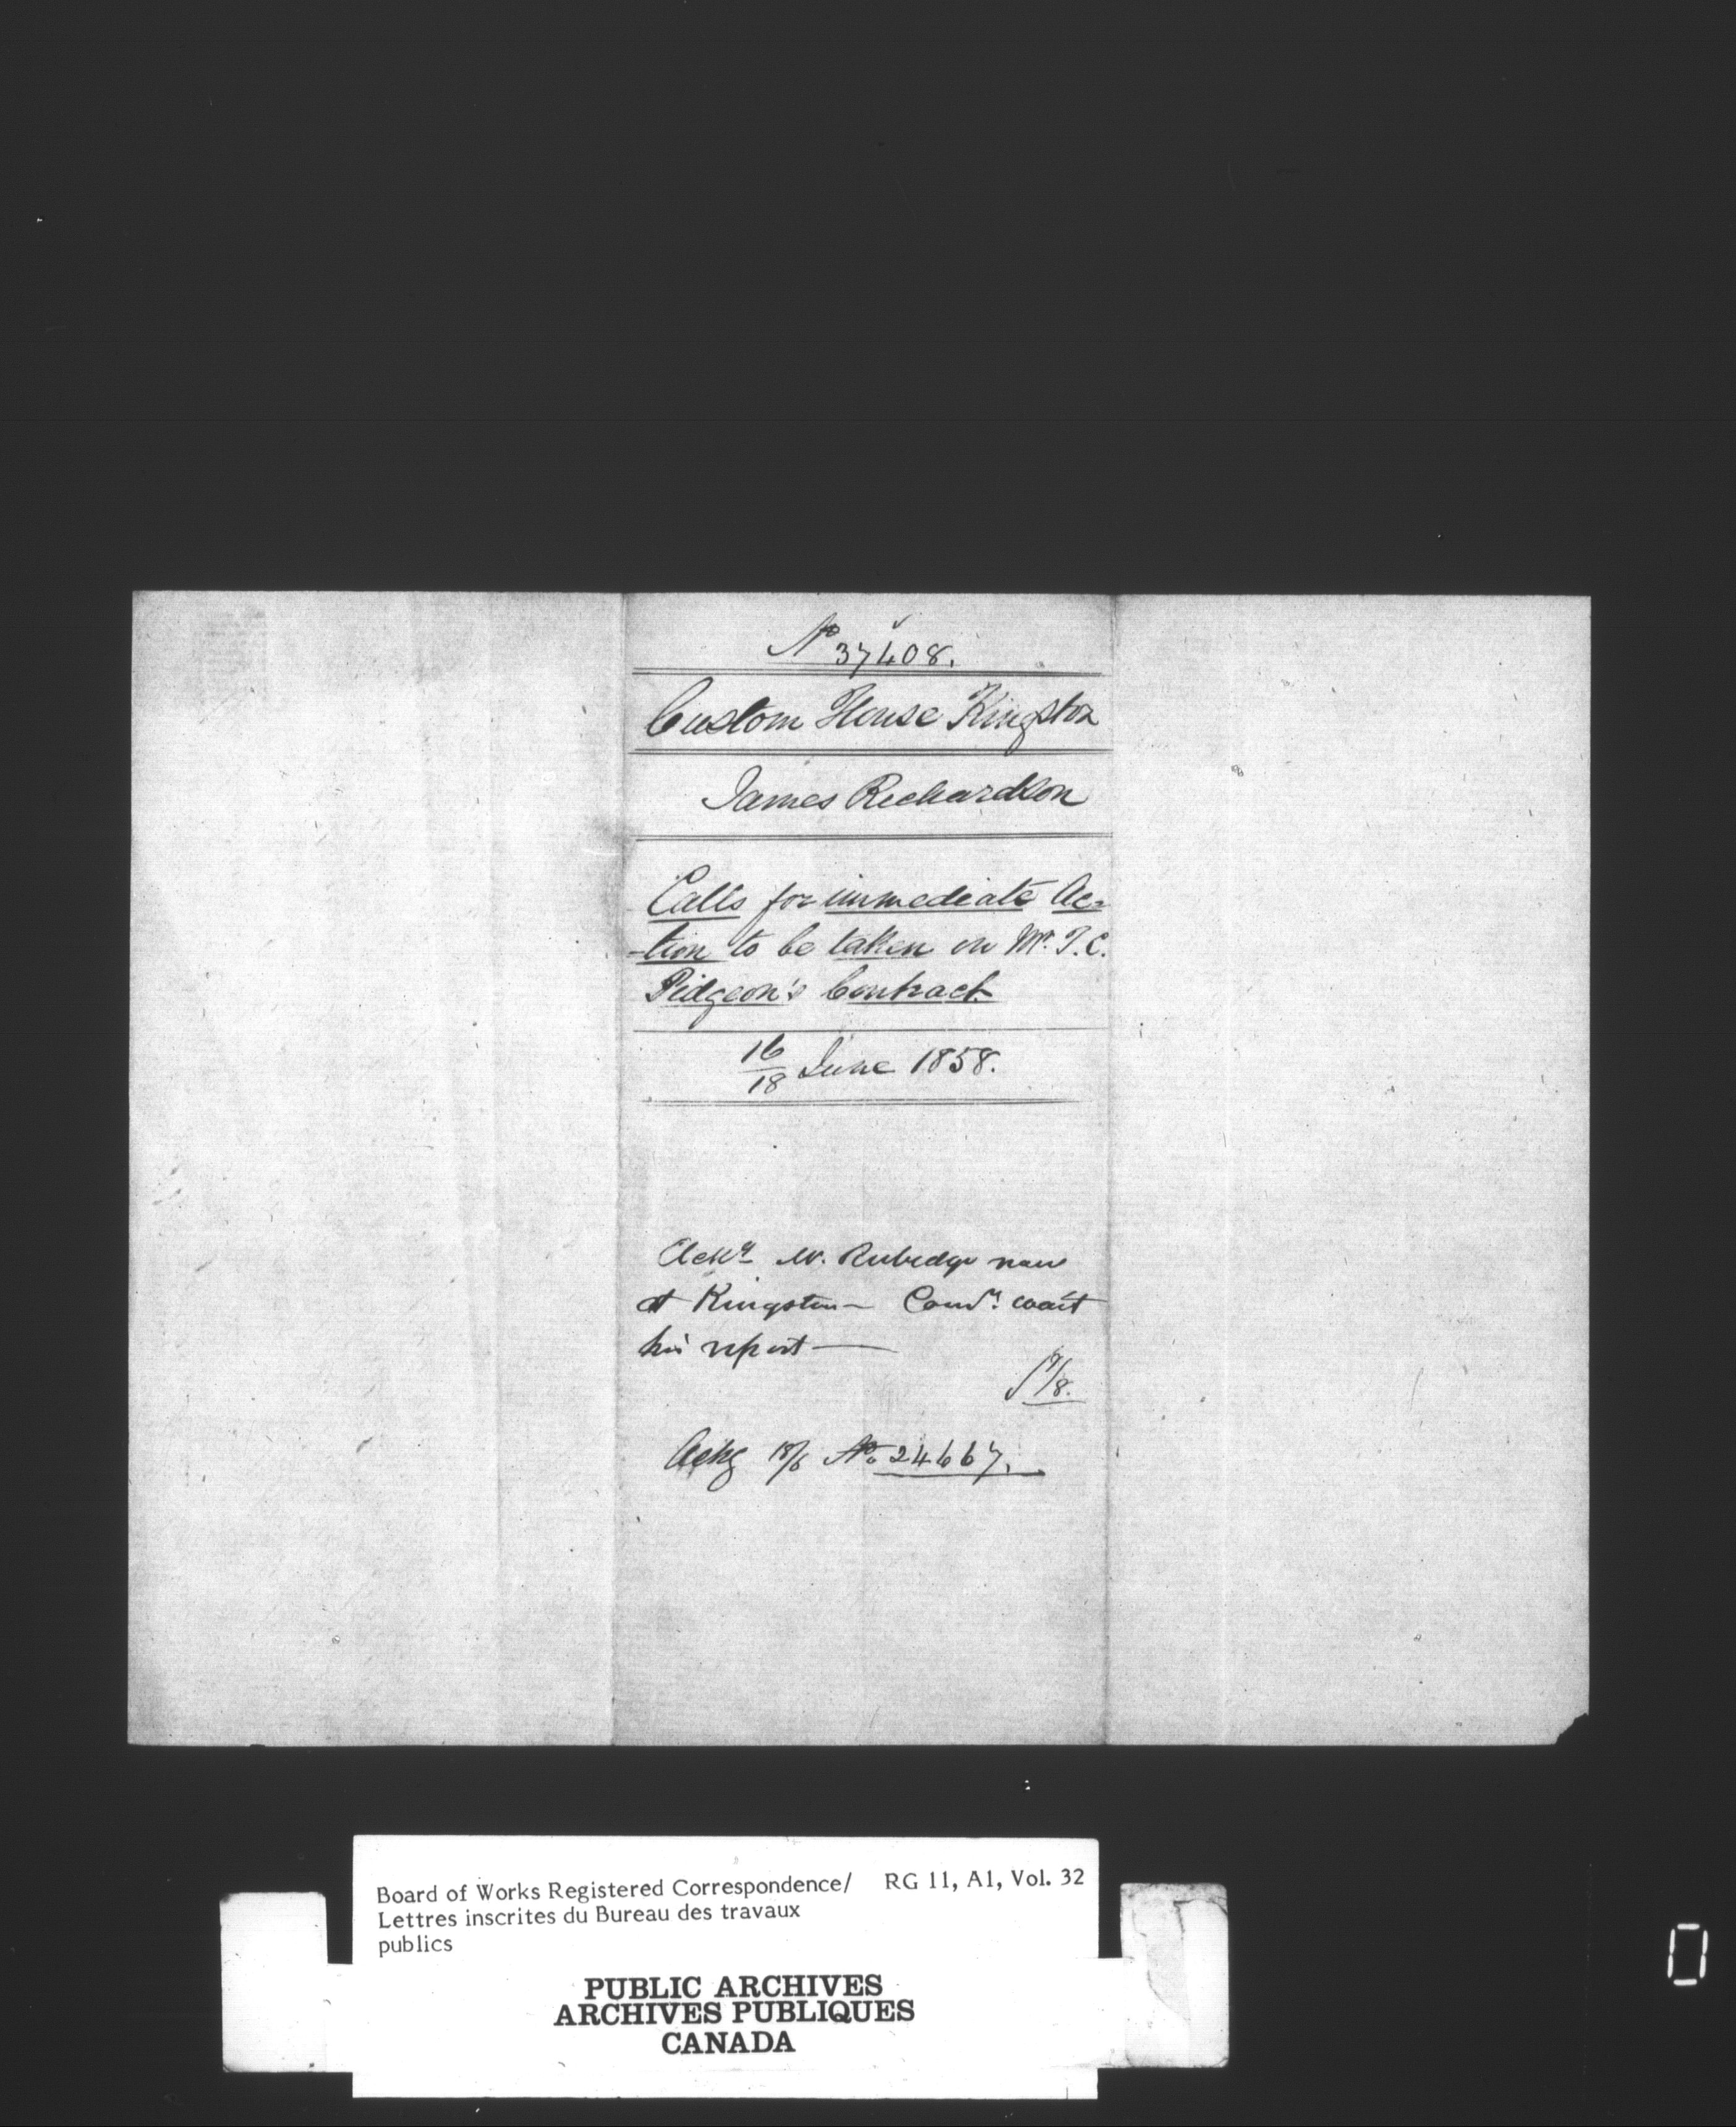 No 37408.
Custom House Kingston
James Richardson
Calls for immediate Ac=
-tion to be taken on Mr. T. C.
Pidgeon's Contract
16/18 June 1858.
Ackg Mr. Rubidge now
at Kingston — Comrs. wait
his report —
Ackg 18/6 No. 24667.
Board of Works Registered Correspondence/ RG 11, A1, Vol. 32
Lettres inscrites du Bureau des travaux
publics
PUBLIC ARCHIVES
ARCHIVES PUBLIQUES
CANADA